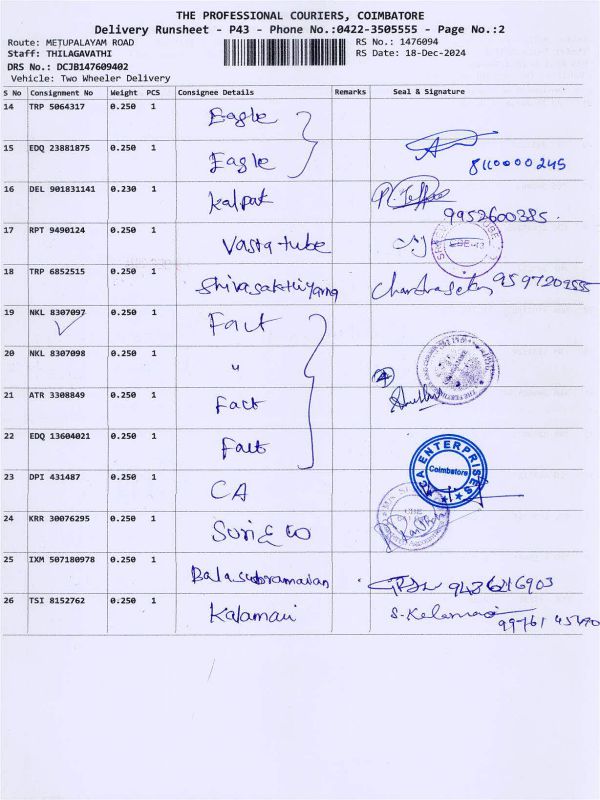 THE PROFESSIONAL COURIERS, COIMBATORE
Delivery Runsheet - P43 - Phone No.:0422-3505555 - Page No.:2
Route: METUPALAYAM ROAD RS No.: 1476094
Staff: THILAGAVATHI RS Date: 18-Dec-2024
DRS No.: DCJB147609402
Vehicle: Two Wheeler Delivery
S No Consignment No Weight PCS Consignee Details Remarks Seal & Signature
14 TRP 5064317 0.250 1 Eagle
15 EDQ 23881875 0.250 1 Eagle 8110000245
16 DEL 901831141 0.230 1 Kalpat 9952600385
17 RPT 9490124 0.250 1 Vasta tube
18 TRP 6852515 0.250 1 Shivasakthiyamg 9597209555
19 NKL 8307097 0.250 1 Fact
20 NKL 8307098 0.250 1 "
21 ATR 3308849 0.250 1 Fact 4
22 EDQ 13604021 0.250 1 Fact
ENTERPRISES
Coimbatore
23 DPI 431487 0.250 1 CA
24 KRR 30076295 0.250 1 Suri & co
25 IXM 507180978 0.250 1 Balasubramanian
26 TSI 8152762 0.250 1 Kalamani S. Kalamani